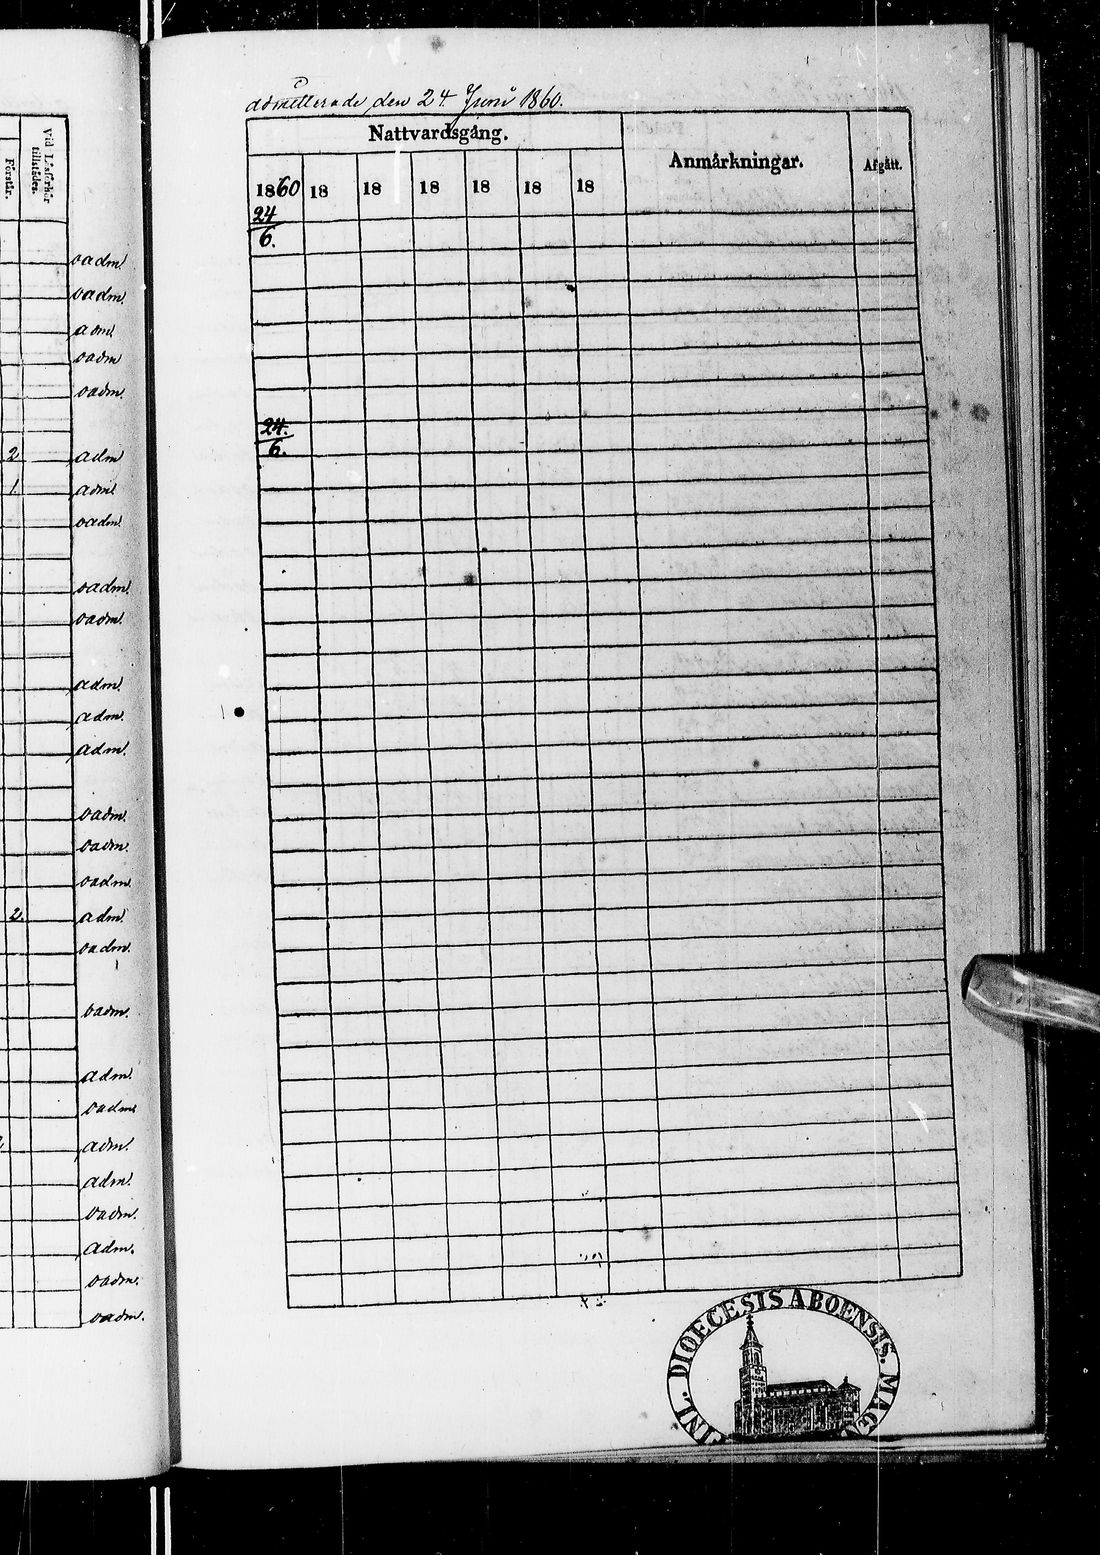 admitterade den 24 Juni 1860.
Nattvardsgång.
Anmärkningar.
Afgått.
1860 18 18 18 18 18 18
24
6.
24.
6.
Förstår.
Vid Läsförhör
tillstädes.
oadm.
oadm.
adm.
oadm
oadm.
2 adm
1. adm.
oadm.
oadm.
oadm.
adm.
adm.
adm.
oadm.
oadm.
oadm.
2. adm.
oadm.
oadm.
adm.
oadm.
adm.
adm.
oadm.
adm.
oadm.
oadm.
DIOECESIS ABOENSIS. MAG